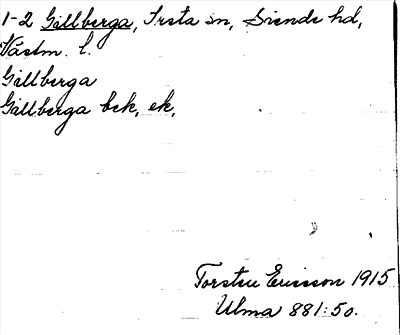 1-2 Gillberga, Irsta sn, Siende hd,
Västm. l.
Gillberga
Gillberga bck, ek,
Torsten Ericsson 1915
Ulma 881:50.